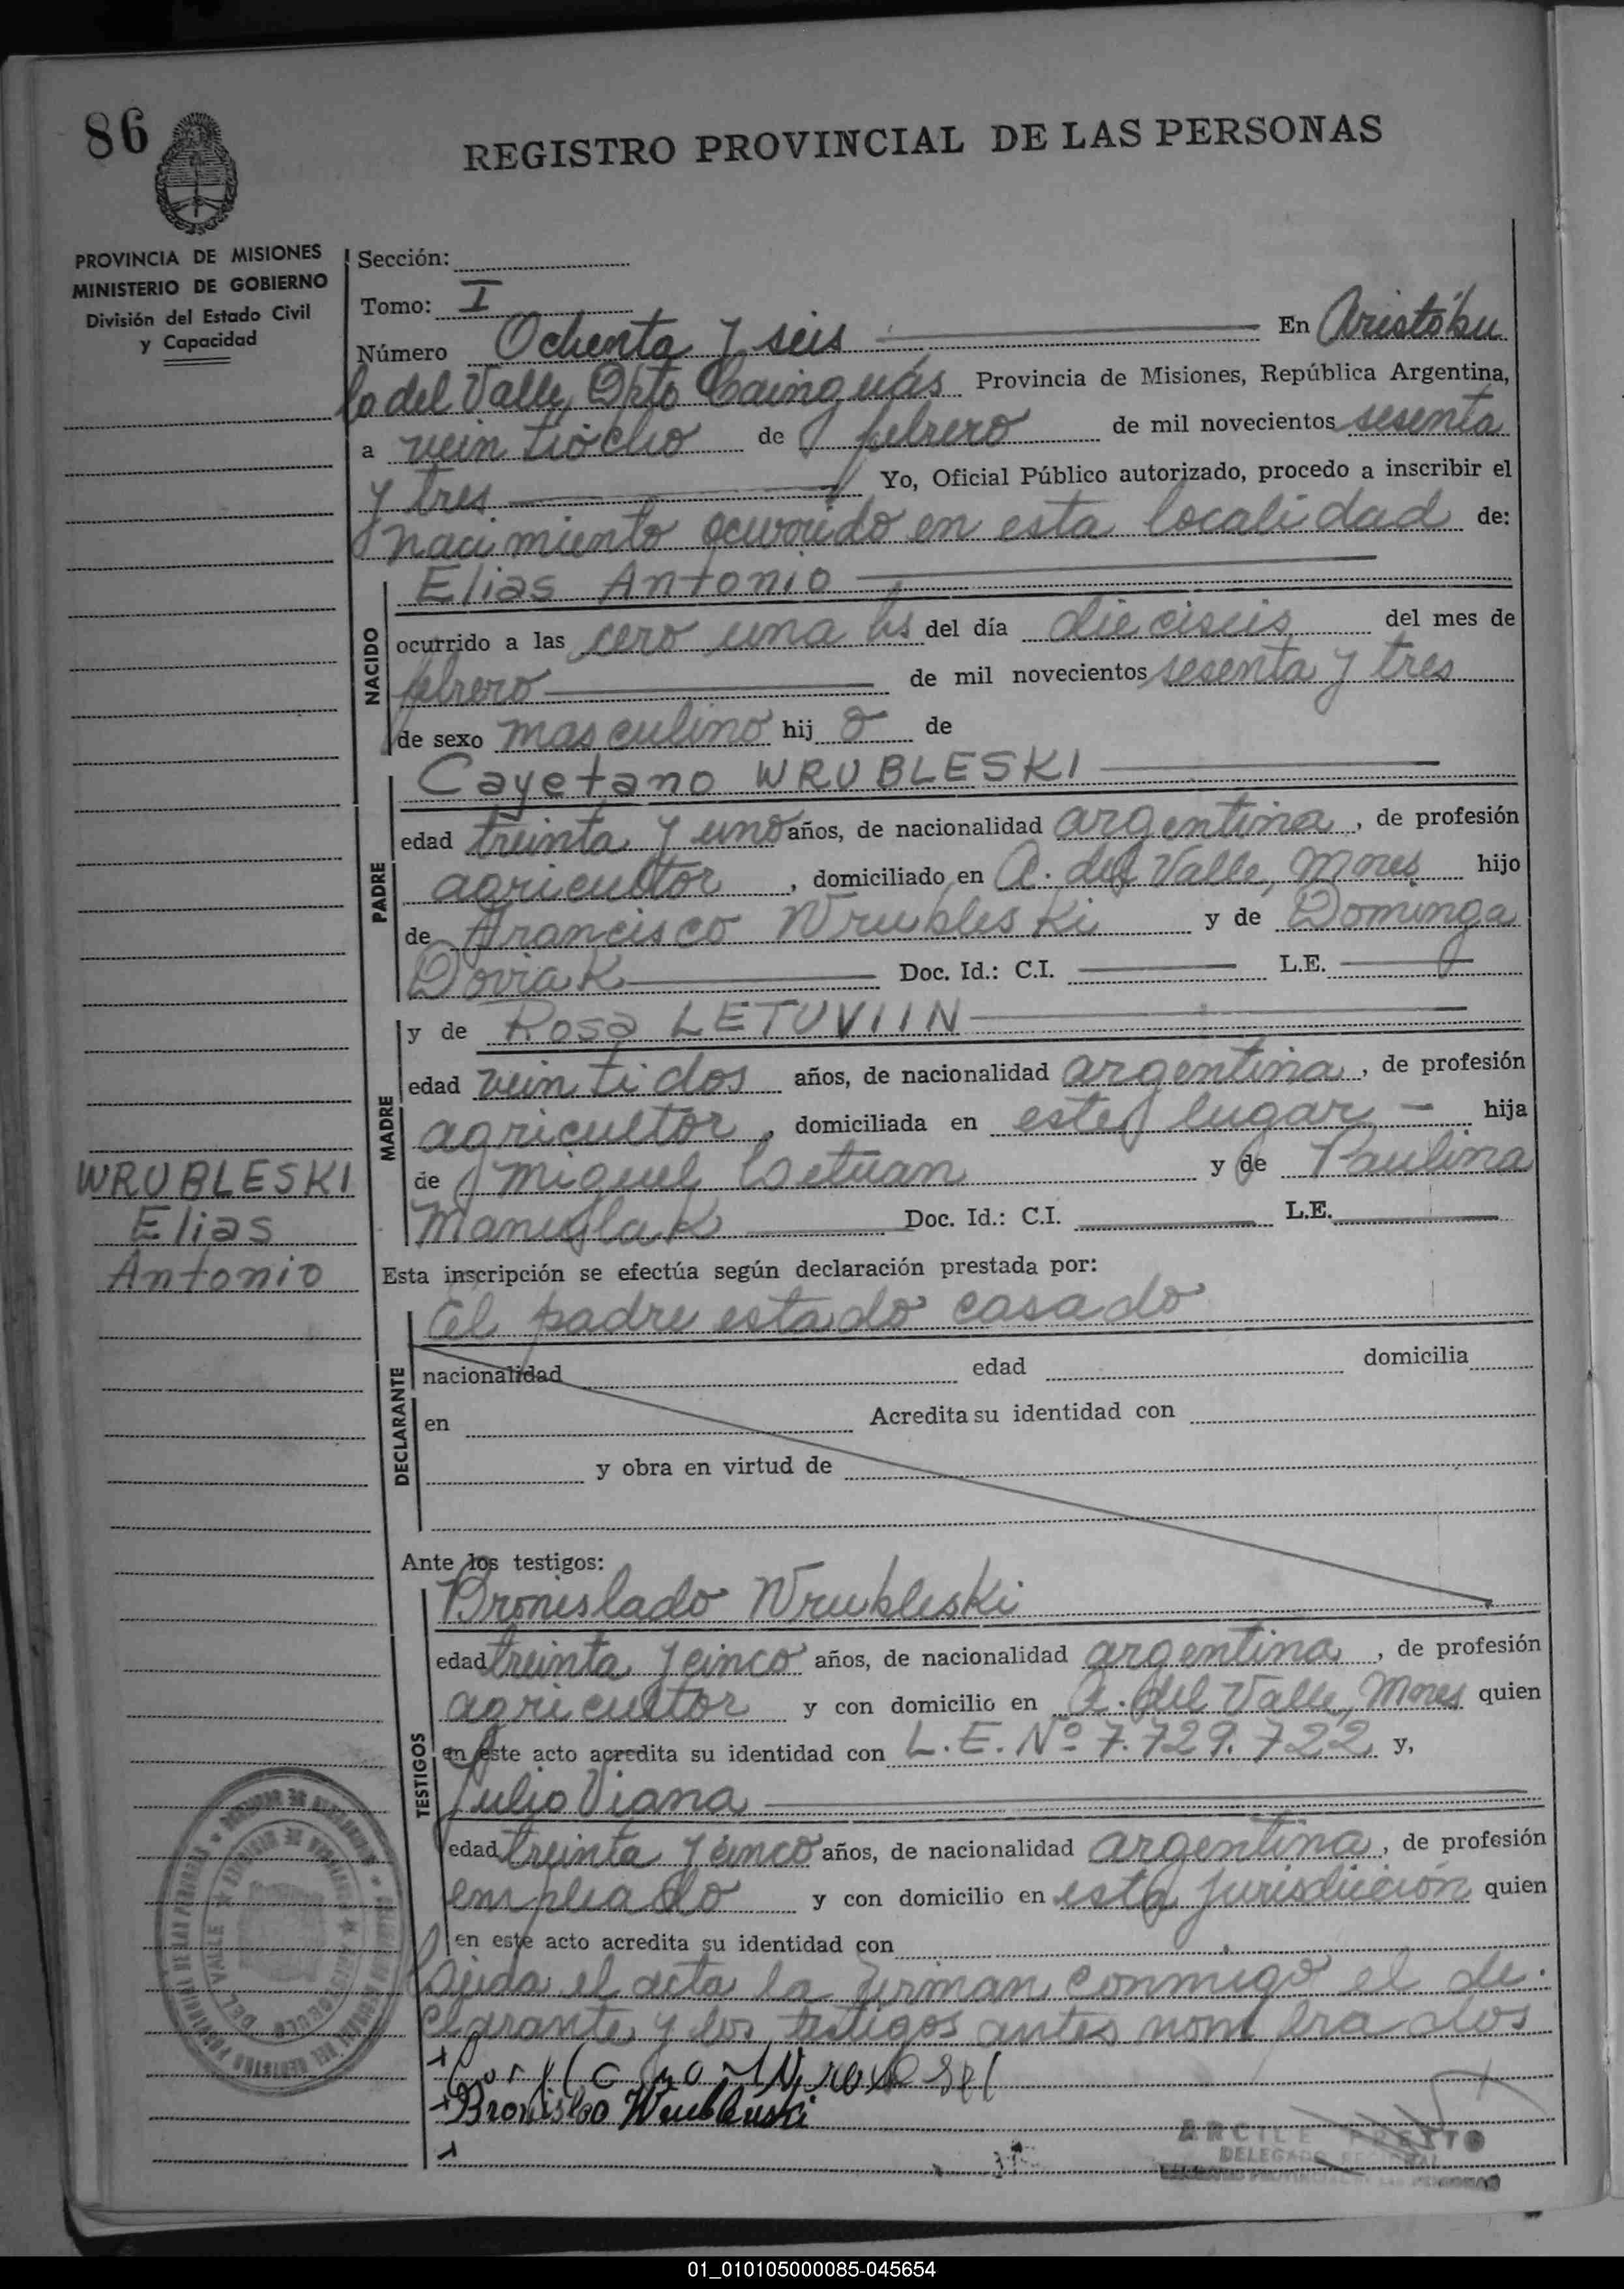 86
REGISTRO PROVINCIAL DE LAS PERSONAS
PROVINCIA DE MISIONES
MINISTERIO DE GOBIERNO
División del Estado Civil
y Capacidad
Sección:
Tomo: I
Número Ochenta y seis En Aristóbu
lo del Valle, Dpto Cainguás Provincia de Misiones, República Argentina,
a veintiocho de febrero de mil novecientos sesenta
y tres Yo, Oficial Público autorizado, procedo a inscribir el
nacimiento ocurrido en esta localidad de:
NACIDO
Elias Antonio
ocurrido a las cero una hs del día dieciseis del mes de
febrero de mil novecientos sesenta y tres
de sexo masculino hij o de
PADRE
Cayetano WRUBLESKI
edad treinta y uno años, de nacionalidad argentina, de profesión
agricultor, domiciliado en A. del Valle, Mnes hijo
de Francisco Wrubleski y de Dominga
Doviak Doc. Id.: C.I. L.E.
MADRE
y de Rosa LETUVIIN
edad veintidos años, de nacionalidad argentina, de profesión
agricultor, domiciliada en este lugar - hija
de Miguel Letuan y de Paulina
Doc. Id.: C.I. L.E.
WRUBLESKI
Elias
Antonio
Esta inscripción se efectúa según declaración prestada por:
DECLARANTE
El padre estado casado
nacionalidad edad domicilia
en Acredita su identidad con
y obra en virtud de
Ante los testigos:
TESTIGOS
Bronislado Wrubleski
edad treinta y cinco años, de nacionalidad argentina, de profesión
agricultor y con domicilio en A. del Valle, Mnes quien
en este acto acredita su identidad con L.E. Nº 7.729.722 y,
Julio Viana
edad treinta y cinco años, de nacionalidad argentina, de profesión
empleado y con domicilio en esta jurisdicción quien
en este acto acredita su identidad con
Leida el acta la firman conmigo el de-
clarante y los testigos antes nombrados
ARCILE PREITO
DELEGADO
01_010105000085-045654